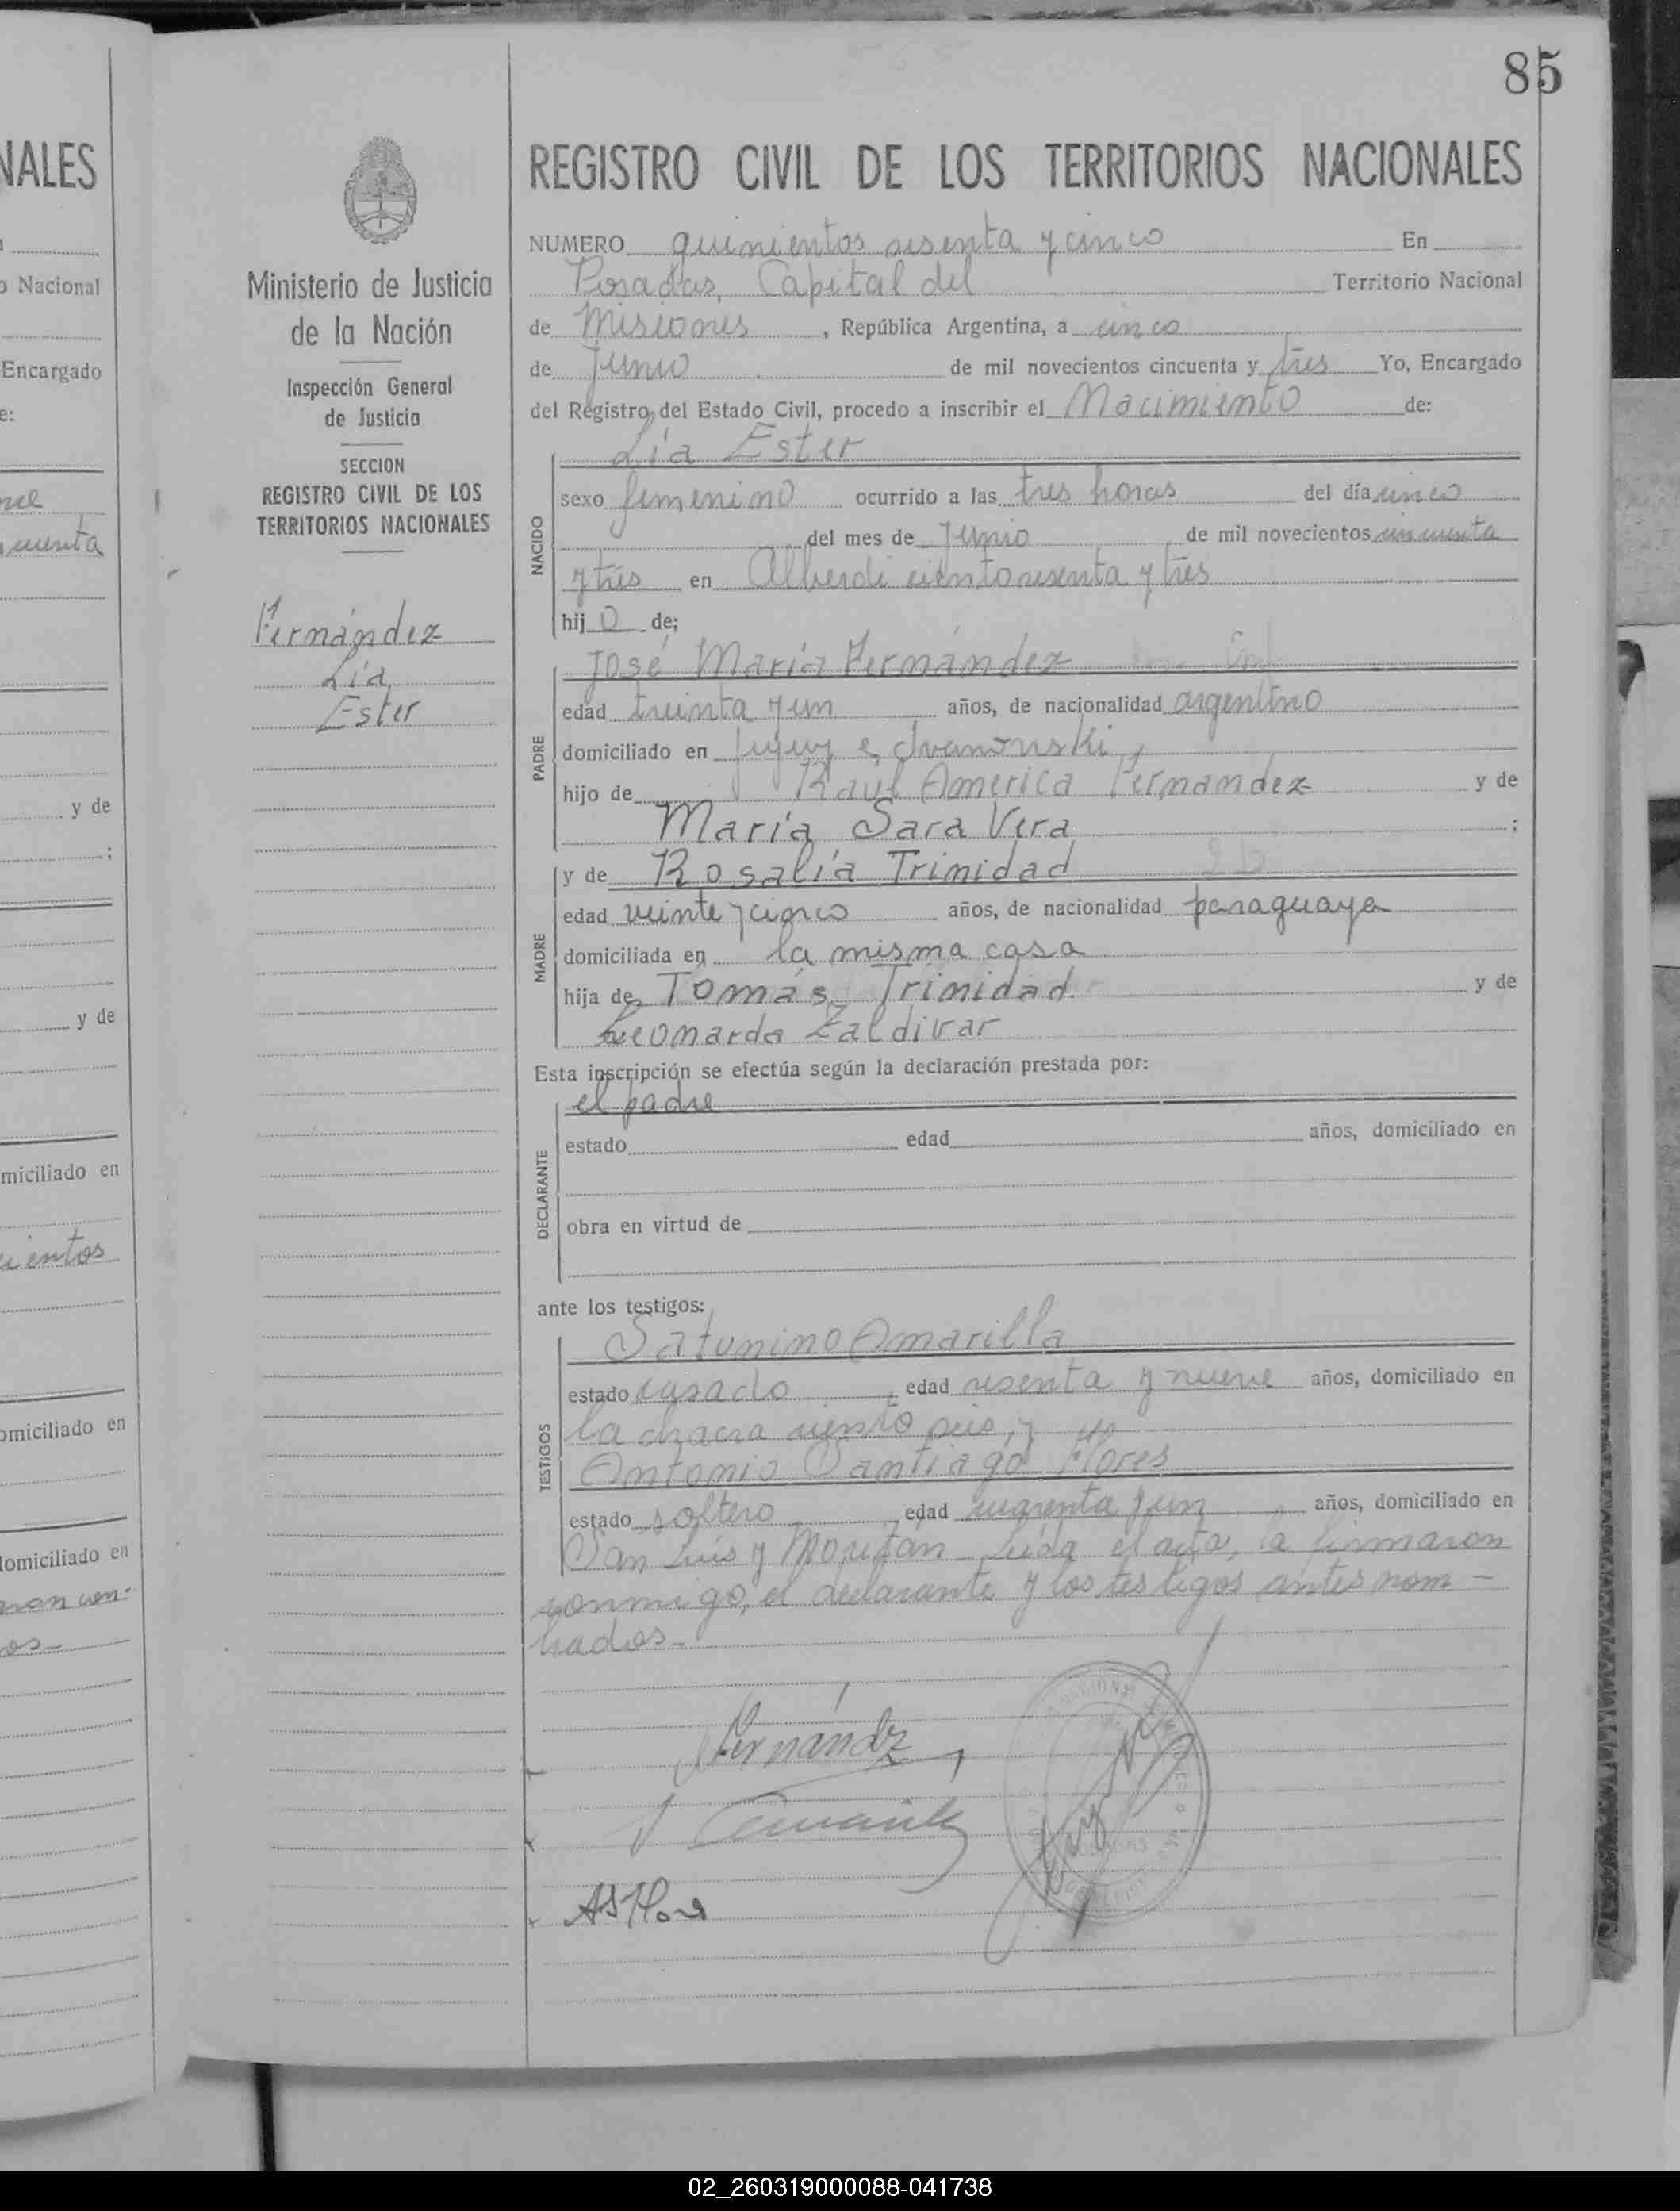 85
NALES
o Nacional
Encargado
e:
cuenta
y de
y de
miciliado en
cientos
omiciliado en
domiciliado en
Ministerio de Justicia
de la Nación
Inspección General
de Justicia
SECCION
REGISTRO CIVIL DE LOS
TERRITORIOS NACIONALES
Fernández
Lía
Ester
REGISTRO CIVIL DE LOS TERRITORIOS NACIONALES
NUMERO quinientos sesenta y cinco En
Posadas, Capital del Territorio Nacional
de Misiones, República Argentina, a cinco
de Junio de mil novecientos cincuenta y tres Yo, Encargado
del Registro del Estado Civil, procedo a inscribir el Nacimiento de:
NACIDO
Lía Ester
sexo femenino ocurrido a las tres horas del día cinco
del mes de Junio de mil novecientos cincuenta
y tres en Alberdi ciento sesenta y tres
hij o de;
PADRE
José María Fernández
edad treinta y un años, de nacionalidad argentino
domiciliado en Jujuy e Ivanowski,
hijo de Raúl America Fernandez y de
María Sara Vera ;
MADRE
y de Rosalía Trinidad
edad veinte y cinco años, de nacionalidad paraguaya
domiciliada en la misma casa
hija de Tomás Trinidad y de
Leonarda Zaldivar
Esta inscripción se efectúa según la declaración prestada por:
DECLARANTE
el padre
estado edad años, domiciliado en
obra en virtud de
ante los testigos:
TESTIGOS
Satunino Amarilla
estado casado, edad sesenta y nueve años, domiciliado en
la chacra ciento seis, y
Antonio Santiago Flores
estado soltero, edad cuarenta y un años, domiciliado en
San Luis y Moritán - Leída el acta, la firmaron
conmigo, el declarante y los testigos antes nom-
brados-
Fernandz
ASFlores
02_260319000088-041738